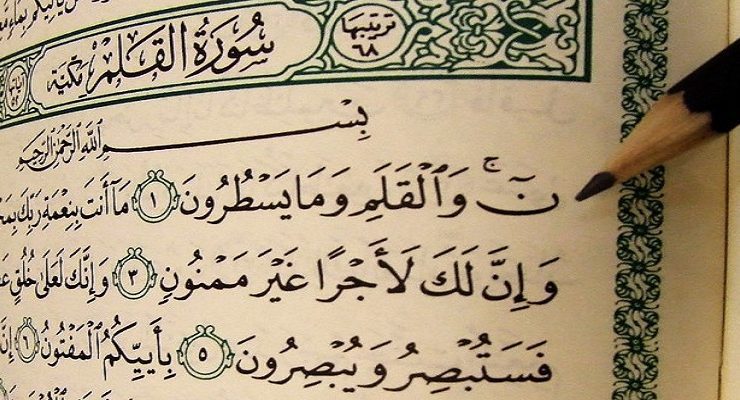 سُورَةُ القَلَمِ مَكِّيَّة
ترتيبها
٦٨
بِسْمِ اللَّهِ الرَّحْمَٰنِ الرَّحِيمِ
نٓ ۚ وَٱلْقَلَمِ وَمَا يَسْطُرُونَ ١ مَآ أَنتَ بِنِعْمَةِ رَبِّكَ
وَإِنَّ لَكَ لَأَجْرًا غَيْرَ مَمْنُونٍ ٣ وَإِنَّكَ لَعَلَىٰ خُلُقٍ
فَسَتُبْصِرُ وَيُبْصِرُونَ ٥ بِأَييِّكُمُ ٱلْمَفْتُونُ ٦